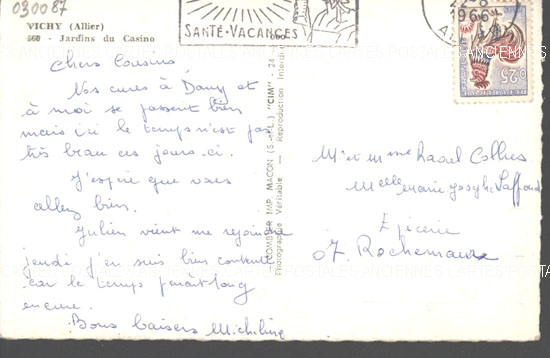 030087
VICHY (Allier)
560 - Jardins du Casino
SANTÉ-VACANCES
22-8
1966
0,25
Chers Cousins,
Nos cures à Dany et
à moi se passent bien
mais ici le temps n'est pas
très beau ces jours-ci.
J'espère que vous
allez bien.
Julien vient me rejoindre
jeudi j'en suis bien contente
car le temps paraît long
encore.
Bons baisers Micheline
COMBIER IMP. MACON (S.-&-L.) "CIM"
Photographie Véritable — Reproduction Interdite
Mr et mme Raoul Collies
Melle marie josephe Laffond
Epicerie
07. Rochemaure
CARTES POSTALES ANCIENNES